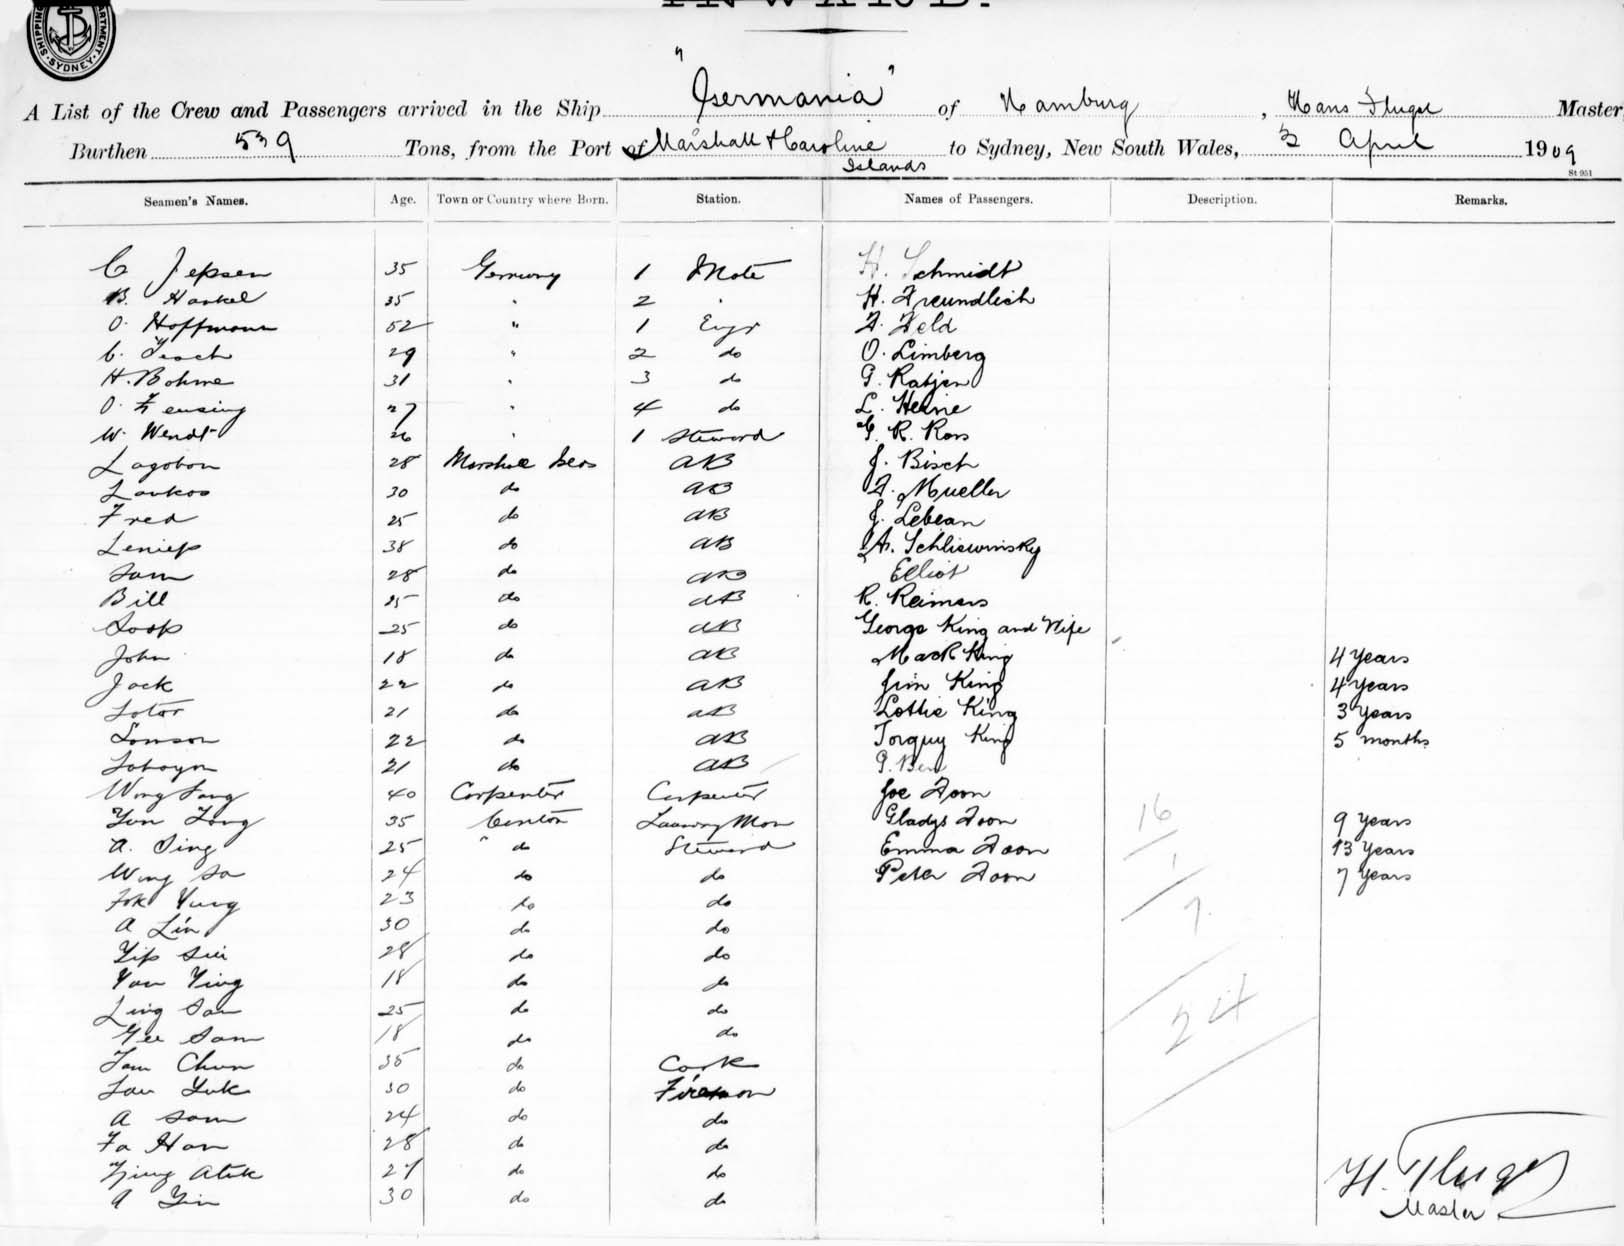 INWARD.
SHIPPING DEPARTMENT. SYDNEY.
A List of the Crew and Passengers arrived in the Ship "Germania" of Hamburg, Hans Fluger Master,
Burthen 539 Tons, from the Port of Marshall & Caroline Islands to Sydney, New South Wales, 3 April 1909
St 951
Seamen's Names. Age. Town or Country where Born. Station. Names of Passengers. Description. Remarks.
C Jepsen 35 Germany 1 Mate H. Schmidt
B. Hankel 35 " 2 " H. Freundlich
O. Hoffmann 52 " 1 Engr F. Feld
C. Tesch 29 " 2 do O. Limberg
H. Bohme 31 " 3 do G. Ratjen
O. Fensing 27 " 4 do L. Heine
W. Wendt 26 " 1 Steward G. R. Ross
Lagobon 28 Marshall Isles AB J. Bisch
Laukos 30 do AB F. Mueller
Fred 25 do AB J. Lebean
Leniep 38 do AB A. Schliswinsky
Sam 28 do AB Elliot
Bill 25 do AB R. Reimers
25 do AB George King and Wife
John 18 do AB Mack King 4 years
Jack 22 do AB Jim King 4 years
Lotor 21 do AB Lottie King 3 years
Lomson 22 do AB Torquy King 5 months
21 do AB
Wong Fang 40 Carpenter Carpenter Joe Foon
Yun Fong 35 Canton Laundry Man Gladys Foon 16 9 years
A. Sing 25 " do Steward Emma Foon 1 13 years
Wing Sa 24 do do Peter Foon 7 years
Fok Yung 23 do do 7
A Lin 30 do do
Yip Sui 28 do do
Yan Ying 18 do do
Ling San 25 do do 24
Gee Sam 18 do do
Tam Chun 35 do Cook
Lau Yuk 30 do Fireman
A Sam 24 do do
Fa Han 28 do do
Atik 27 do do H. Fluger
A Yin 30 do do Master